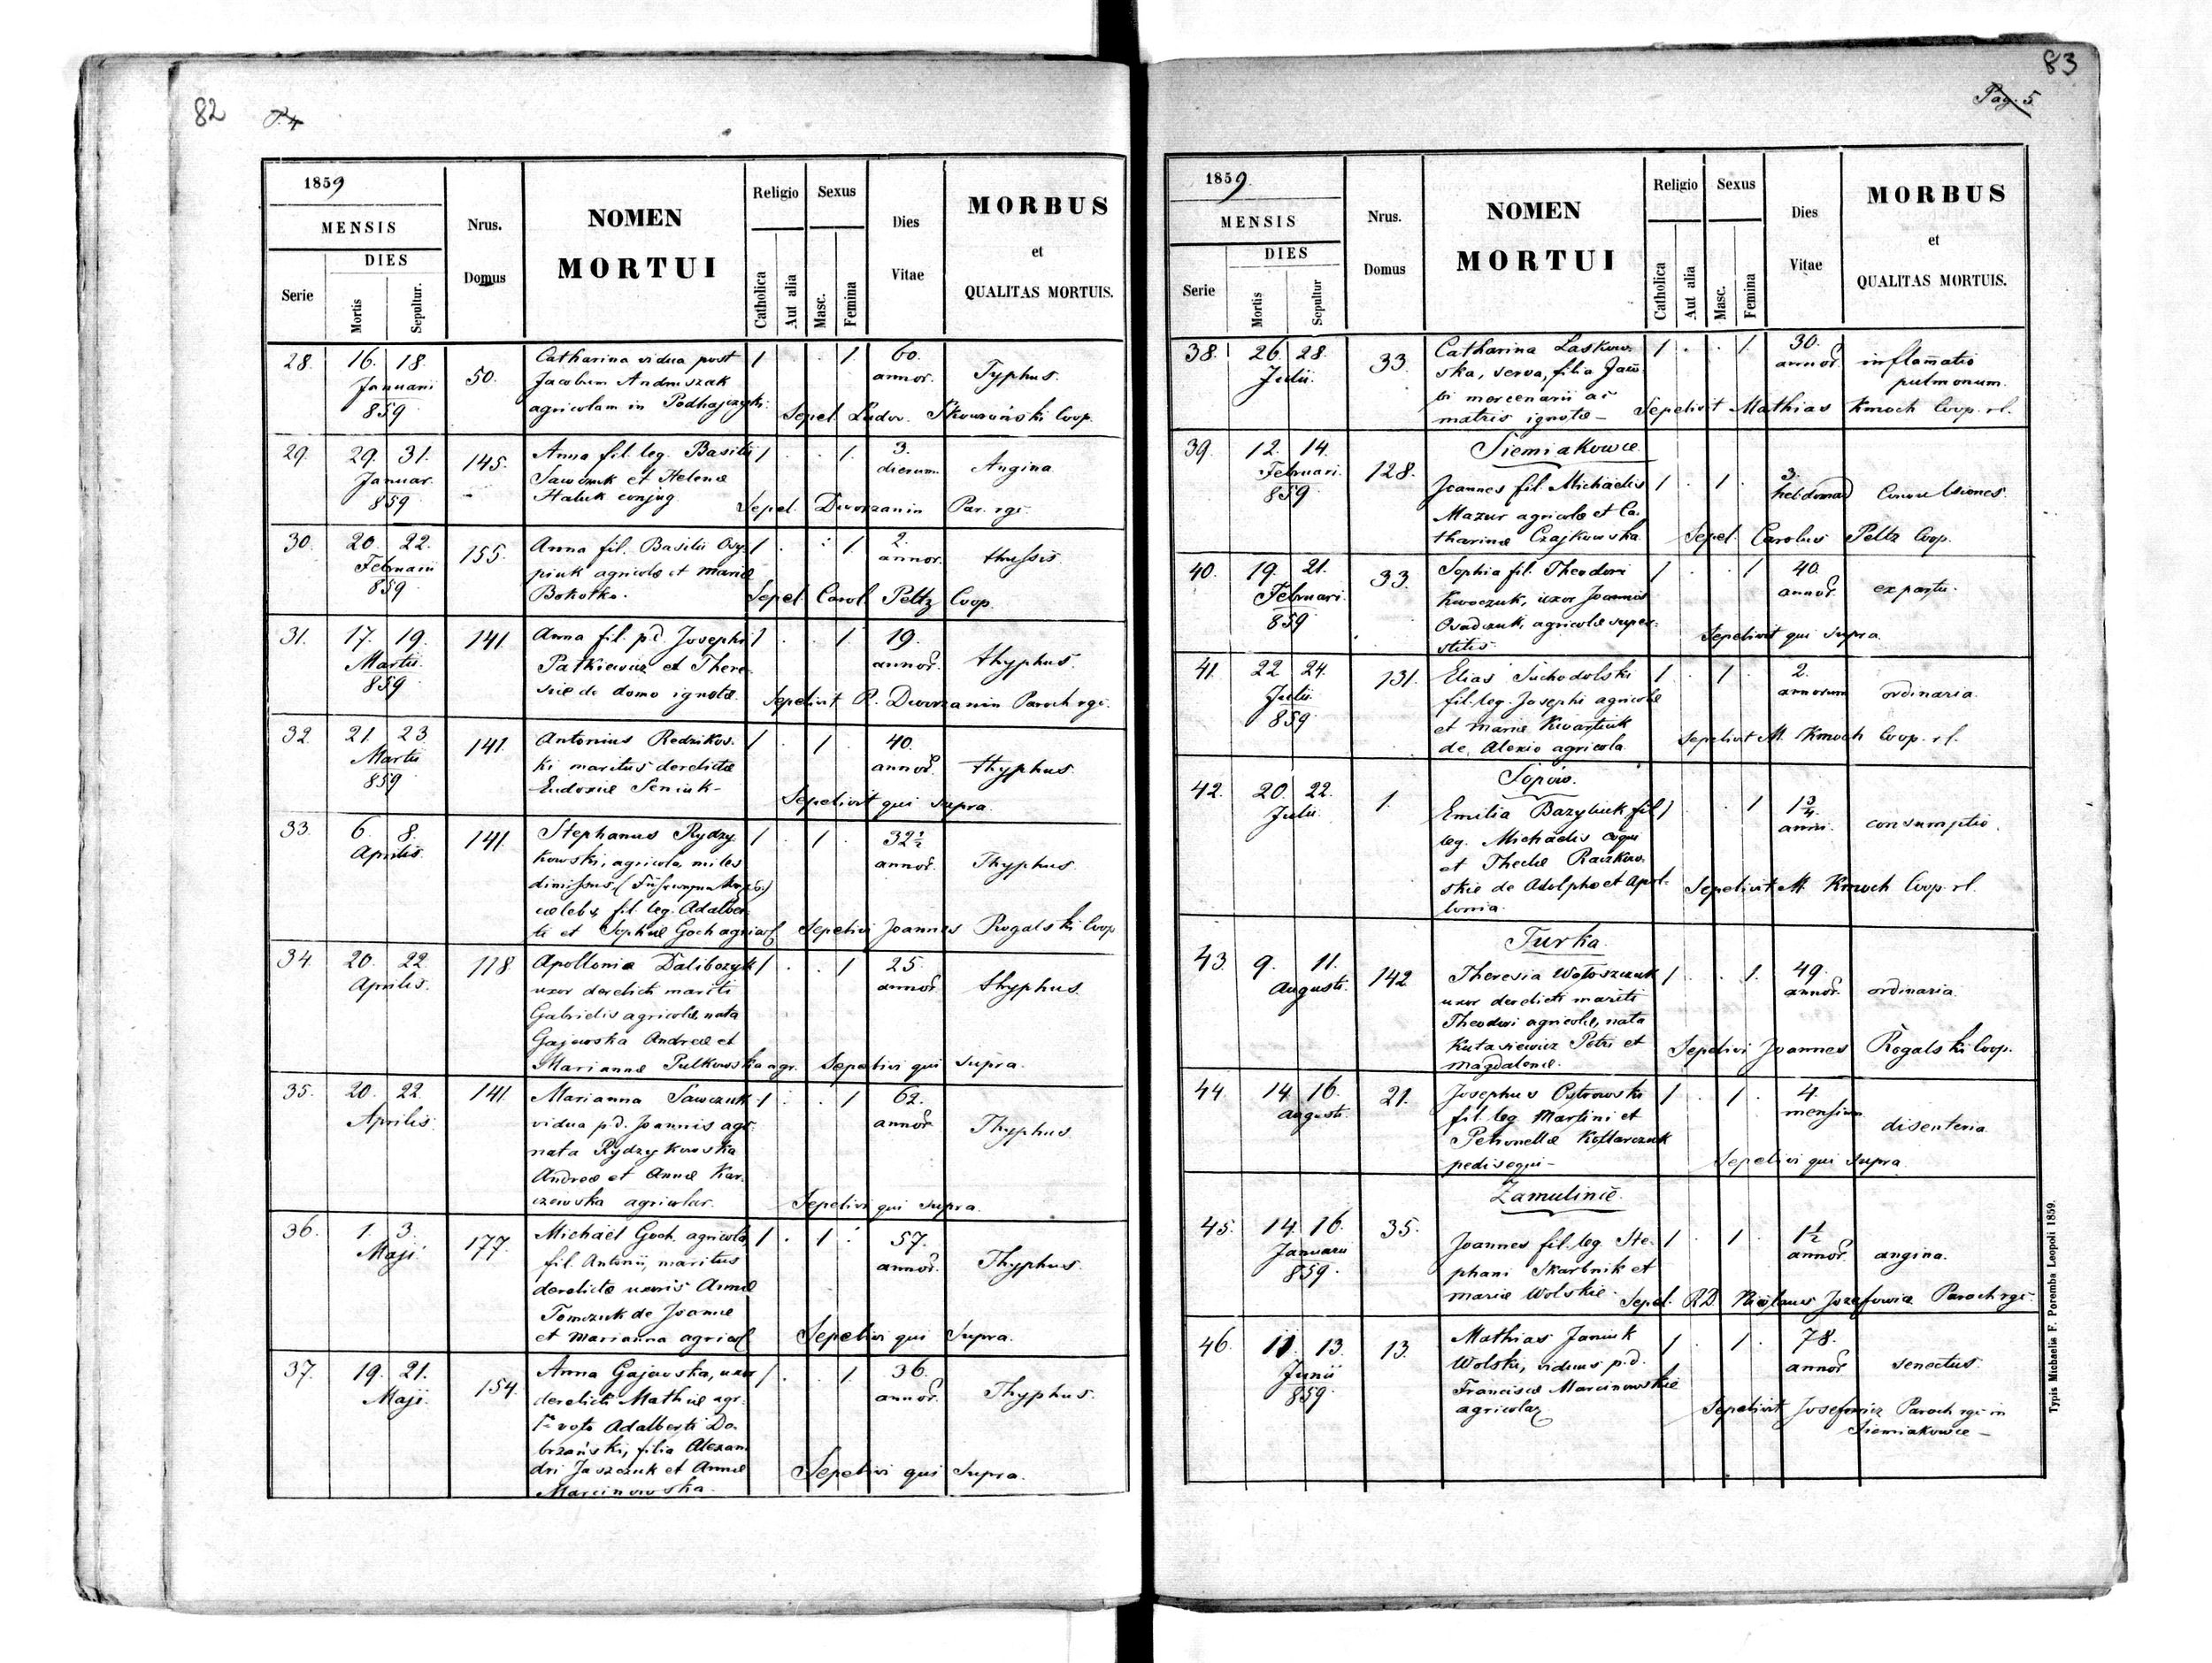 82
P. 4
1859
MENSIS
DIES
Serie
Mortis
Sepultur.
Nrus.
Domus
NOMEN
MORTUI
Religio
Catholica
Aut alia
Sexus
Masc.
Femina
Dies
Vitae
MORBUS
et
QUALITAS MORTUIS.
28. 16. 18. Januarii 859 50. 1 . . 1. 60. annor. Typhus.
Catharina vidua post
Jacobum Andruszak
agricolam in Podhajczyki.
Sepel. Ludov. Skowroński Coop.
29. 29. 31. Januar. 859 145. 1 . . 1. 3. dierum Angina
Anna fil. leg. Basilii
Sawczuk et Helenæ
Haluk conjug.
Sepel. Dworzanin Par. rgi.
30. 20. 22. Februarii 859 155. 1 . . 1. 2. annor. thussis
Anna fil. Basilii Osy-
piuk agricolæ et Mariæ
Bokotko.
Sepel. Carol. Peltz Coop.
31. 17. 19. Martii 859 141. 1 . . 1. 19. annor. thyphus.
Anna fil. p.d. Josephi
Patkiewicz et There-
siæ de domo ignotæ.
Sepelivit P. Dworzanin Paroch rgi.
32. 21. 23 Martii 859 141. 1 . 1 . 40. annor. thyphus
Antonius Redzikos-
ki maritus derelictæ
Eudoxiæ Seniuk -
Sepelivit qui supra.
33. 6. 8. Aprilis. 141. 1 . 1 . 32½ annor. Thyphus
Stephanus Rydzy-
kowski, agricola, miles
dimissus,
cælebs, fil. leg. Adalber-
ti et Sophiæ Goch agricol.
Sepelivi Joannes Rogalski Coop
34. 20. 22. Aprilis. 118. 1 . . 1 25. annor. thyphus
Apollonia Dalibozyk
uxor derelicti mariti
Gabrielis agricolæ, nata
Gajewska Andreæ et
Mariannæ Pulkowska agr.
Sepelivi qui supra.
35. 20. 22. Aprilis. 141. 1 . . 1 62. annor. Thyphus
Marianna Sawczuk
vidua p.d. Joannis agr.
nata Rydzykowska
Andreæ et Annæ Kar-
czewska agricolar.
Sepelivi qui supra.
36. 1. 3. Maji. 177. 1 . 1 . 57. annor. Thyphus.
Michaël Goch agricola,
fil. Antonii, maritus
derelictæ uxoris Annæ
Tomczuk de Joanne
et Marianna agricol.
Sepelivi qui Supra.
37. 19. 21. Maji. 154. 1 . . 1 36. annor. Thyphus.
Anna Gajewska, uxor
derelicti Mathiæ agr.
voto Adalberti Do-
brzański, filia Alexan-
dri Jaszczuk et Annæ
Marcinowska.
Sepelivi qui supra.
83
Pag. 5.
1859.
MENSIS
DIES
Serie
Mortis
Sepultur
Nrus.
Domus
NOMEN
MORTUI
Religio
Catholica
Aut alia
Sexus
Masc.
Femina
Dies
Vitae
MORBUS
et
QUALITAS MORTUIS.
38. 26. 28. Julii. 33. 1 . . 1. 30. annor. inflam̄atio pulmonum.
Catharina Laskow-
ska, serva, filia
mercenarii ac
matris ignotæ -
Sepelivit Mathias Kmoch Coop. rl.
Siemiakowce
39. 12. 14. Februari. 859 128. 1 . 1 . 3. hebdomad Convulsiones.
Joannes fil. Michaelis
Mazur agricolæ et Ca-
tharinæ Czajkowska
Sepel. Carolus Peltz Coop.
40. 19. 21. Februari. 859 33. 1 . . 1 40. annor. ex partu.
Sophia fil. Theodori
Kwoczuk, uxor Joannis
Osadczuk, agricolæ super-
stitis
Sepelivit qui supra
41. 22 24. Julii 859. 131. 1 . 1 . 2. annorum ordinaria.
Elias Suchodolski
fil. leg. Josephi agricolæ
et Mariæ Kwartiuk
de Alexio agricola.
Sepelivit M. Kmoch Coop. rl.
Sopów.
42. 20. 22. Julii. 1. 1 . . 1 1¾ anni. consumptio.
Emilia Bazyliuk fil.
leg. Michaelis coqui
et Theclæ Raczkow-
skie de Adolpho et Apol-
lonia.
Sepelivit M. Kmoch Coop. rl.
Turka.
43. 9. 11. Augusti. 142. 1 . . 1. 49. annor. ordinaria
Theresia Wołoszczuk
uxor derelicti mariti
Theodori agricolæ, nata
Kutasiewicz Petri et
Magdalenæ.
Sepelivi Joannes Rogalski Coop.
44 14. 16. Augusti. 21. 1 . 1 . 4. mensium disenteria
Josephus Ostrowski
fil. leg. Martini et
Petronellæ Kotlarczuk
pedisequi -
Sepelivi qui supra.
Zamulince.
45. 14. 16. Januarii 859. 35. 1 . 1 . 1½ annor. angina.
Joannes fil. leg. Ste-
phani Skarbnik et
Mariæ Wolskie.
Sepel. RD Nicolaus Jozefowicz Paroch rgi.
46. 11. 13. Junii 859. 13. 1 . 1 . 78. annor. senectus.
Mathias Janiuk
Wolski, viduus p.d.
Franciscæ Marcinowskie
agricola
Sepelivit Josefowicz Paroch rgi in
Siemiakowce -
Typis Michaelis F. Poremba Leopoli 1859.